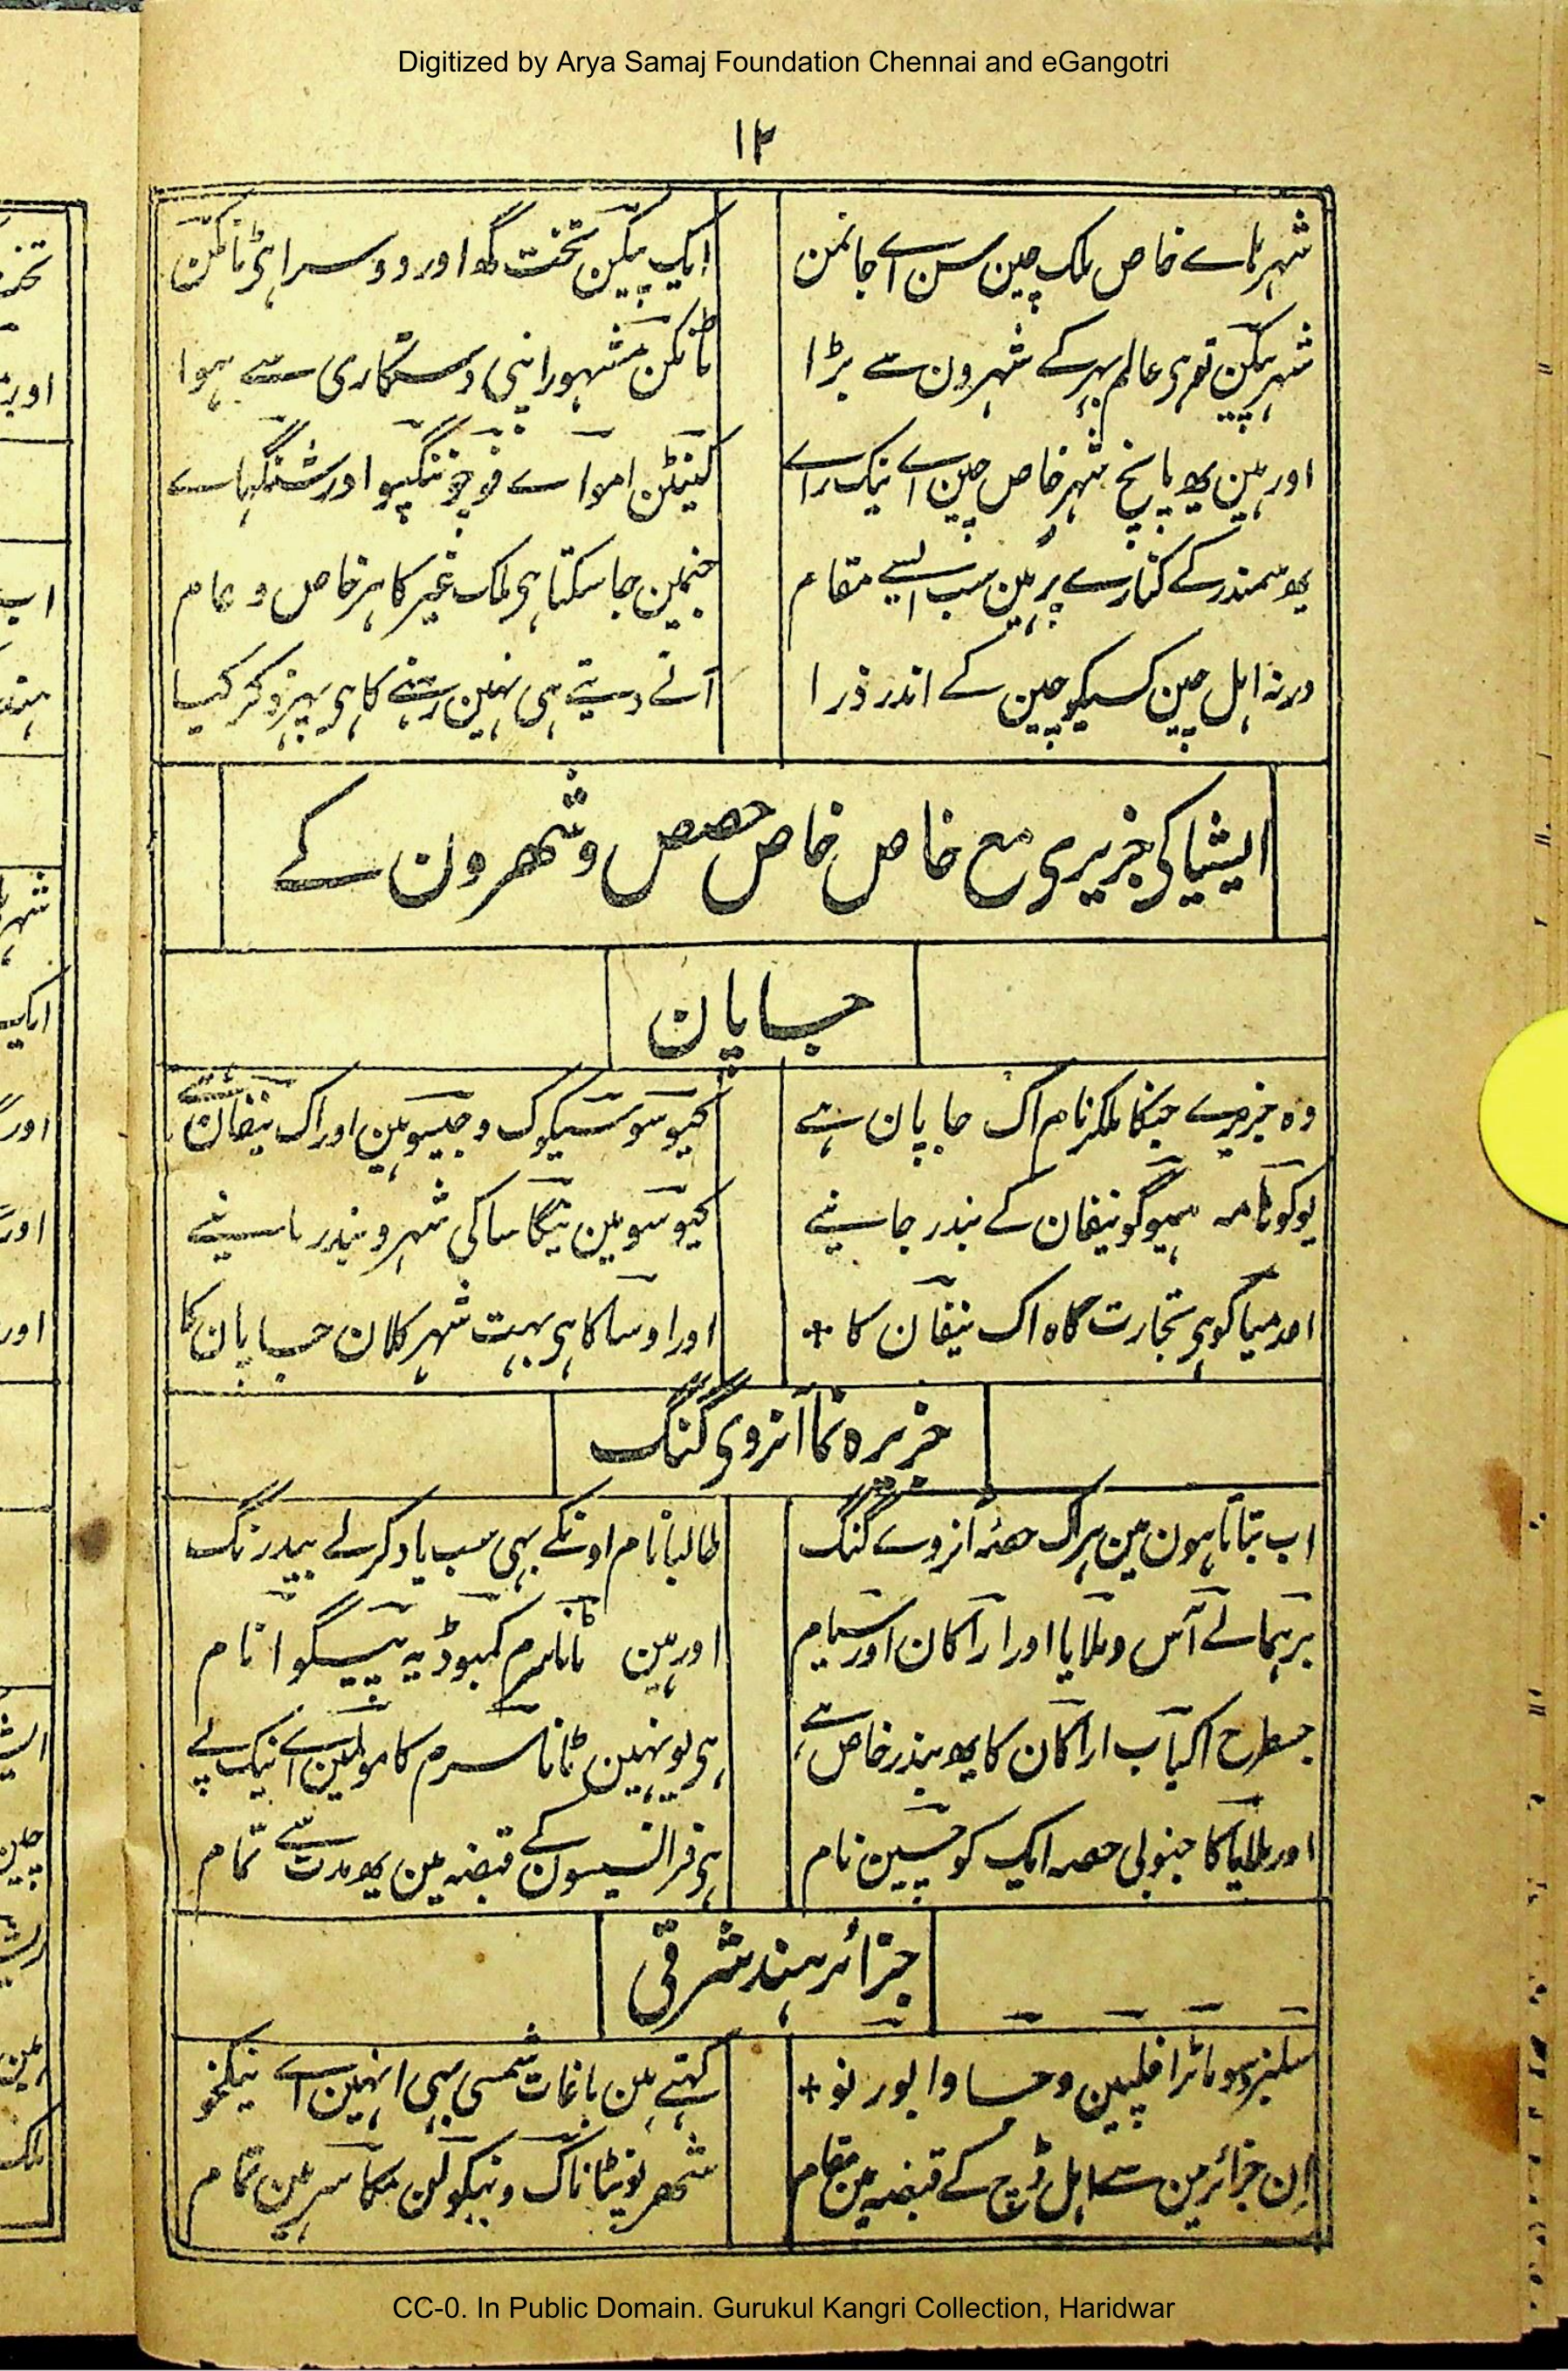 Digitized by Arya Samaj Foundation Chennai and eGangotri
۱۲
شہر ہاے خاص ملک چین سن اے جانمن
ایک پیکن تخت گہ اور دوسرا ہی نانکن
شہر پیکن تو ہی عالم بہر کے شہرون سے بڑا
نانکن مشہور اپنی دستکاری سے ہوا
اور ہین یہ پانچ شہر خاص چین اے نیک راے
کینٹن امواے فوچو ننگپو اور شنگہاے
یہ سمندر کے کنارے پر ہین سب ایسے مقام
جنمین جا سکتا ہی ملک غیر کا ہر خاص و عام
ورنہ اہل چین کسیکو چین کے اندر ذرا
آنے دیتے ہی نہین رہنے کا ہی پہر ذکر کیا
ایشیا کی جزیری مع خاص خاص حصص و شہرون کے
جاپان
وہ جزیرے جنکا ملکر نام اک جاپان ہے
کیوسو سیکوک و جیسو ہین اور اک نیفان ہے
یوکوہامہ ہیوگو نیفان کے بندر جانیے
کیوسو مین نیگاساکی شہر و بندر مانیے
اور میاکو ہی تجارت گاہ اک نیفان کا
اور اوساکا ہی بہت شہر کلان جاپان کا
جزیرہ نما آنروی گنگ
اب بتاتا ہون مین ہر اک حصہ آنروے گنگ
طالبا نام اونکے بہی سب یاد کر لے بیدرنگ
برہما لے آس و ملایا اور اراکان اور سیام
اور ہین ٹاناسرم کمبوڈیہ پیگو انام
جسطرح اکیاب اراکان کا یہ بندر خاص ہے
ہی یونہین ٹاناسرم کا مولمین اے نیک پے
اور ملایا کا جنوبی حصہ ایک کوچین نام
ہی فرانسیسون کے قبضہ مین یہ مدت سے تمام
جزائر ہند شرقی
سلیبز و سوماٹرا فلپین و جاوا بورنو
کہتے ہین باغات شمسی بہی انہین اے نیکخو
اِن جزائر مین سے اہل ڈچ کے قبضہ مین مقام
شہر نویٹاناگ و بنکولن مکاسر ہین تمام
CC-0. In Public Domain. Gurukul Kangri Collection, Haridwar